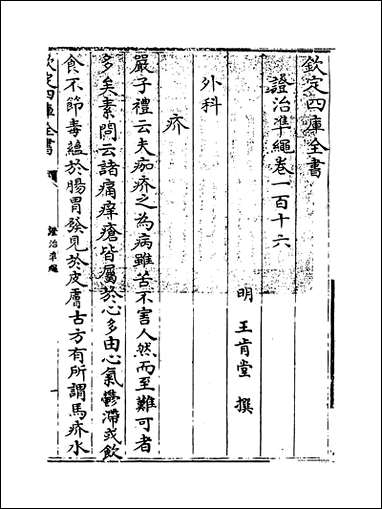 欽定四庫全書
證治準繩卷一百十六
明 王肯堂 撰
外科
疥
嚴子禮云夫痂疥之為病雖苦不害人然而至難可者
多矣素問云諸痛痒瘡皆屬於心多由心氣鬱滯或飲
食不節毒蘊於腸胃發見於皮膚古方有所謂馬疥水
欽定四庫全書
證治準繩